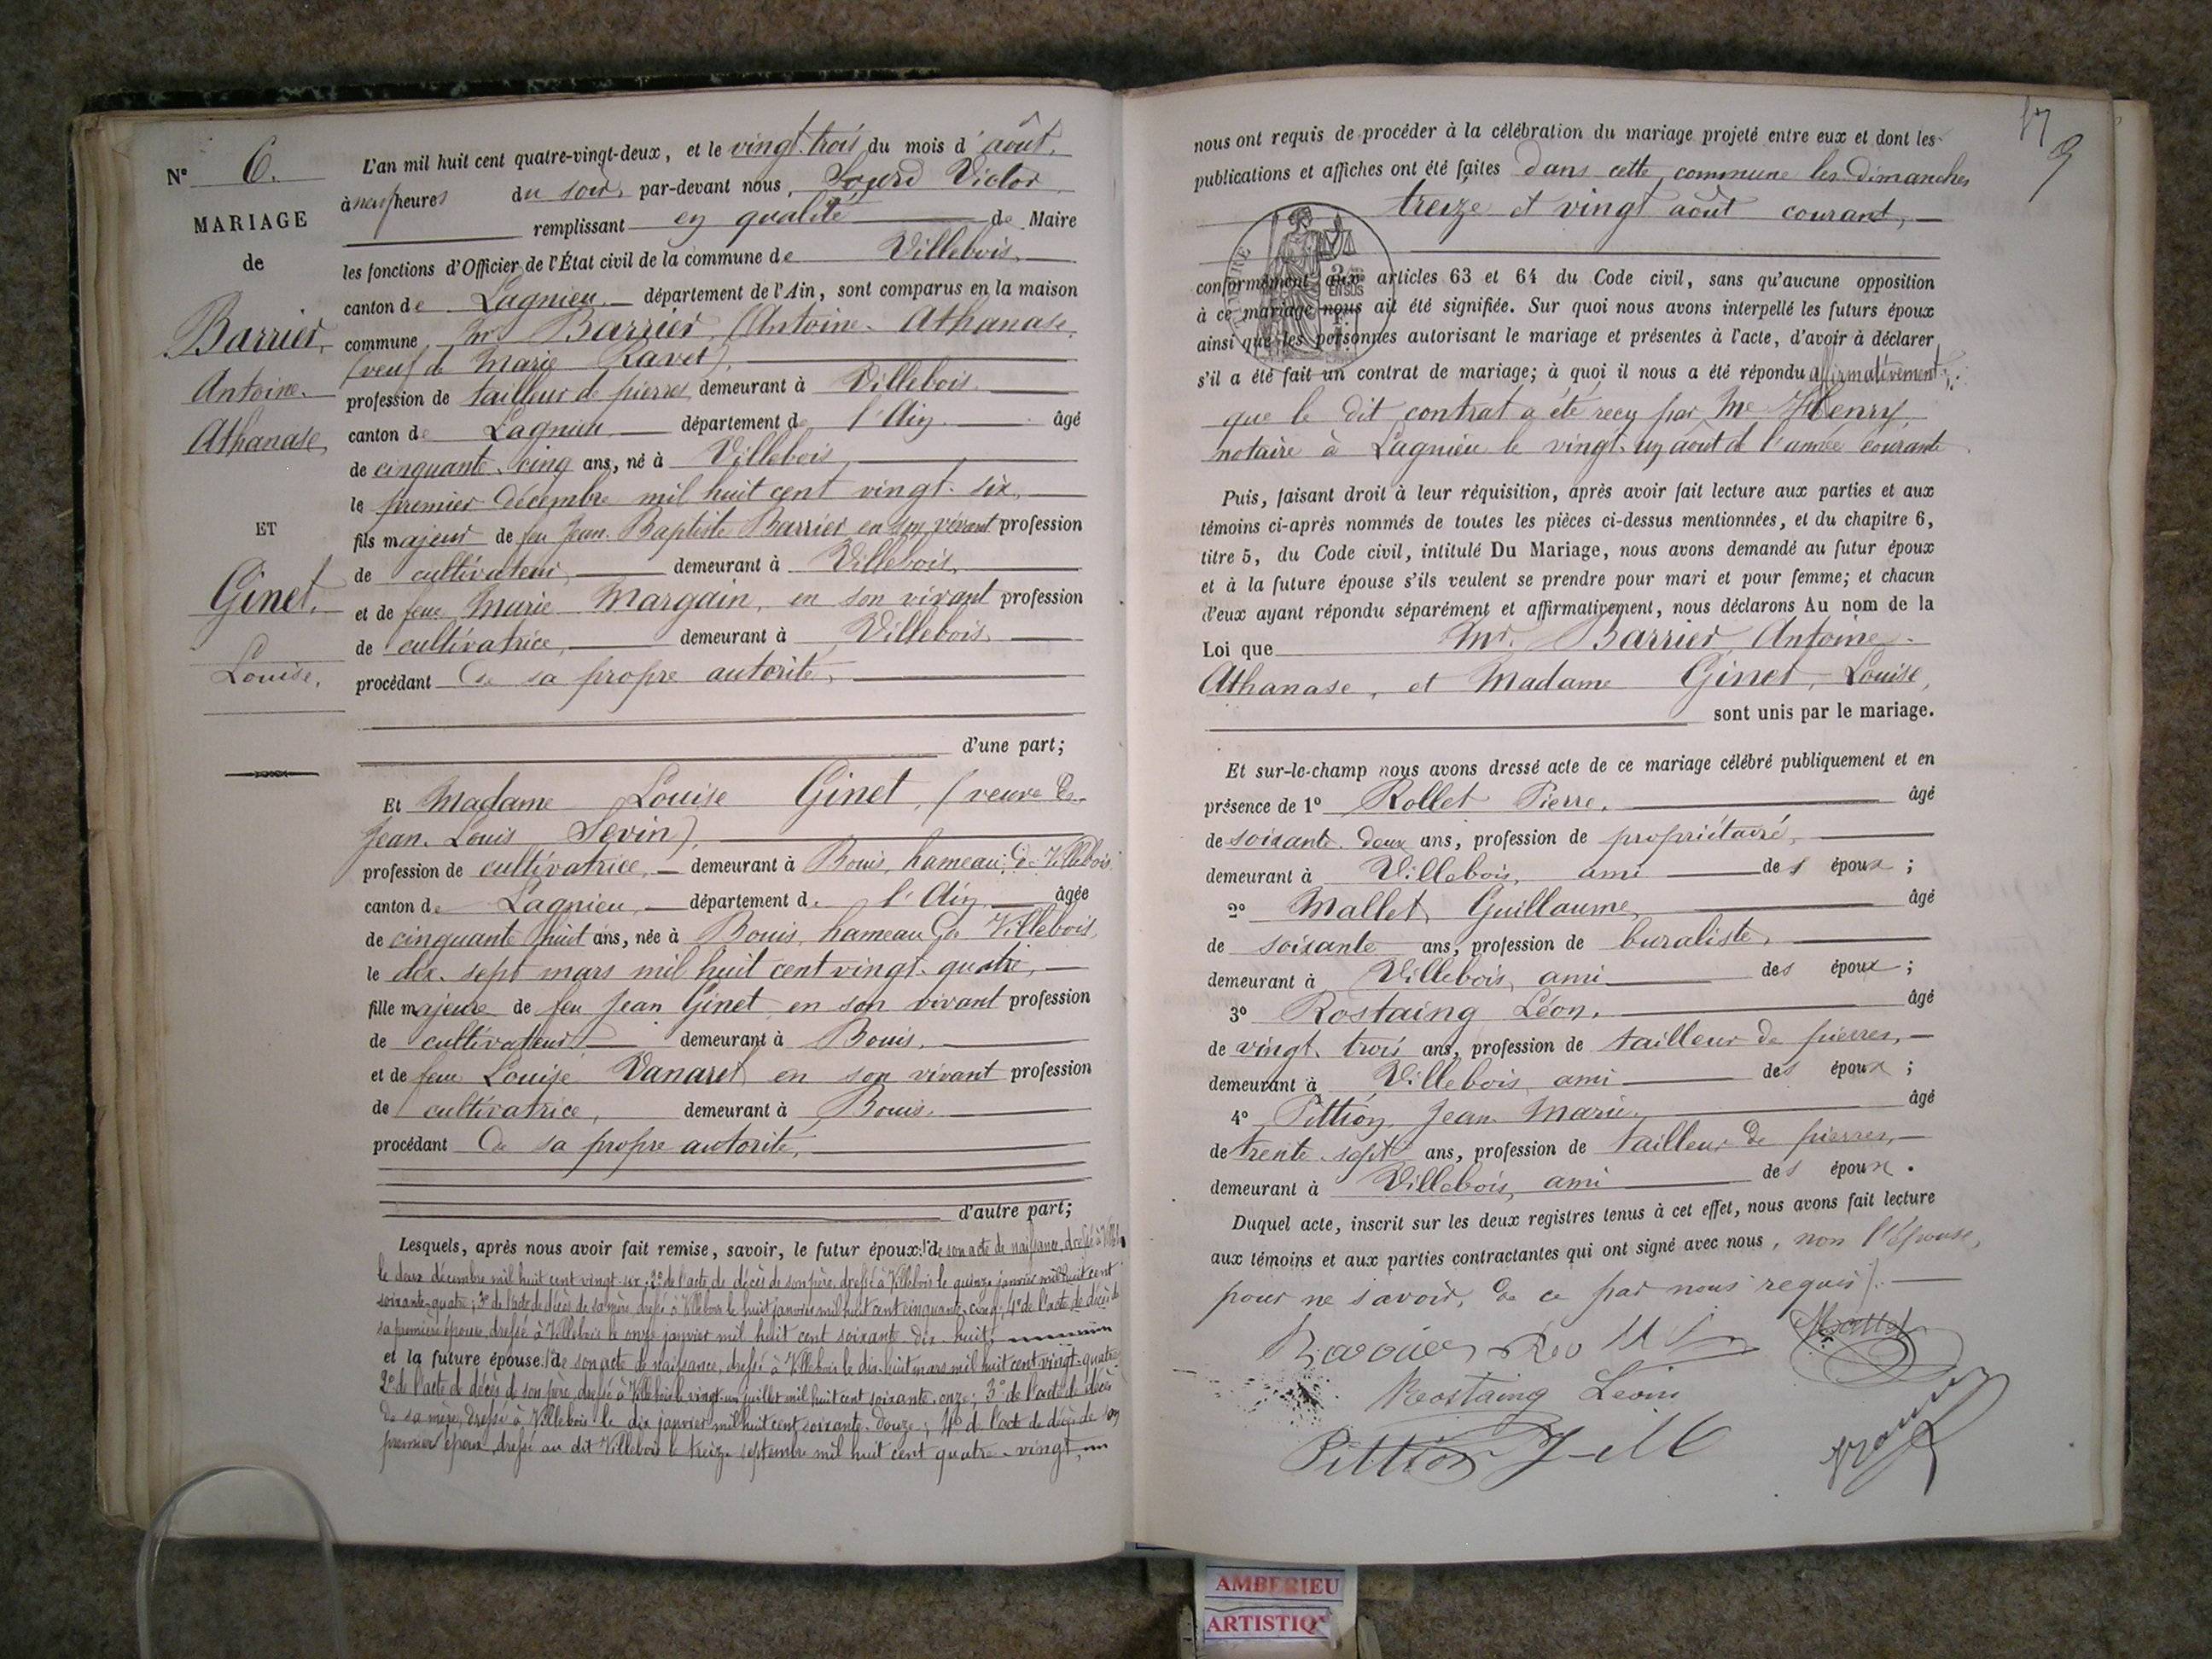 N° 6.
MARIAGE
de
Barrier,
Antoine
Athanase,
ET
Ginet,
Louise,
L'an mil huit cent quatre-vingt-deux, et le vingt-trois du mois d'août,
à neuf heures du soir, par-devant nous, Victor
remplissant en qualité de Maire
les fonctions d'Officier de l'État civil de la commune de Villebois,
canton de Lagnieu, département de l'Ain, sont comparus en la maison
commune, Mr Barrier, (Antoine-Athanase,
(veuf de Marie Ravet),
profession de tailleur de pierres, demeurant à Villebois,
canton de Lagnieu département de l'Ain âgé
de cinquante-cinq ans, né à Villebois,
le premier décembre mil huit cent vingt-six,
fils majeur de feu Jean-Baptiste Barrier en son vivant profession
de cultivateur, demeurant à Villebois,
et de feue Marie Margain, en son vivant profession
de cultivatrice, demeurant à Villebois,
procédant de sa propre autorité,
d'une part;
Et Madame Louise Ginet, (veuve de
Jean-Louis Sevin),
profession de cultivatrice, demeurant à Bouis, hameau de Villebois
canton de Lagnieu, département de l'Ain, âgée
de cinquante-huit ans, née à Bouis, hameau de Villebois,
le dix-sept mars mil huit cent vingt-quatre,
fille majeure de feu Jean Ginet en son vivant profession
de cultivateur demeurant à Bouis,
et de feue Louise Vanaret en son vivant profession
de cultivatrice, demeurant à Bouis,
procédant de sa propre autorité,
d'autre part;
Lesquels, après nous avoir fait remise, savoir, le futur époux: 1° de son acte de naissance, dressé à
le deux décembre mil huit cent vingt-six; 2° de l'acte de décès de son père, dressé à Villebois le quinze janvier mil huit cent
soixante-quatre; 3° de l'acte de décès de sa mère, dressé à Villebois le huit janvier mil huit cent cinquante-cinq; 4° de l'acte de décès de
sa première épouse, dressé à Villebois le onze janvier mil huit cent soixante-dix-huit;
et la future épouse: 1° de son acte de naissance, dressé à Villebois le dix-huit mars mil huit cent vingt-quatre
2° de l'acte de décès de son père, dressé à Villebois le vingt-un juillet mil huit cent soixante-onze; 3° de l'acte de décès
de sa mère, dressé à Villebois le dix janvier mil huit cent soixante-douze; 4° de l'acte de décès de son
premier époux, dressé au dit Villebois le treize septembre mil huit cent quatre-vingt,
nous ont requis de procéder à la célébration du mariage projeté entre eux et dont les
publications et affiches ont été faites dans cette commune les dimanches
treize et vingt août courant,
conformément aux articles 63 et 64 du Code civil, sans qu'aucune opposition
à ce mariage nous ait été signifiée. Sur quoi nous avons interpellé les futurs époux
ainsi que les personnes autorisant le mariage et présentes à l'acte, d'avoir à déclarer
s'il a été fait un contrat de mariage; à quoi il nous a été répondu affirmativement,
que le dit contrat a été reçu par Me Henry,
notaire à Lagnieu le vingt-un août de l'année courante
Puis, faisant droit à leur réquisition, après avoir fait lecture aux parties et aux
témoins ci-après nommés de toutes les pièces ci-dessus mentionnées, et du chapitre 6,
titre 5, du Code civil, intitulé Du Mariage, nous avons demandé au futur époux
et à la future épouse s'ils veulent se prendre pour mari et pour femme; et chacun
d'eux ayant répondu séparément et affirmativement, nous déclarons Au nom de la
Loi que Mr. Barrier Antoine-
Athanase, et Madame Ginet, Louise,
sont unis par le mariage.
Et sur-le-champ nous avons dressé acte de ce mariage célébré publiquement et en
présence de 1° Rollet Pierre, âgé
de soixante-deux ans, profession de propriétaire,
demeurant à Villebois, ami des époux;
2° Mallet Guillaume, âgé
de soixante ans, profession de buraliste,
demeurant à Villebois, ami des époux;
3° Rostaing Léon, âgé
de vingt-trois ans, profession de tailleur de pierres,
demeurant à Villebois ami des époux;
4° Pittion Jean-Marie, âgé
de trente-sept ans, profession de tailleur de pierres,
demeurant à Villebois, ami des époux.
Duquel acte, inscrit sur les deux registres tenus à cet effet, nous avons fait lecture
aux témoins et aux parties contractantes qui ont signé avec nous, non l'épouse,
pour ne savoir, de ce par nous requis.
Mallet
Rostaing Leon
Pittion J-M
AMBERIEU
ARTISTIQ